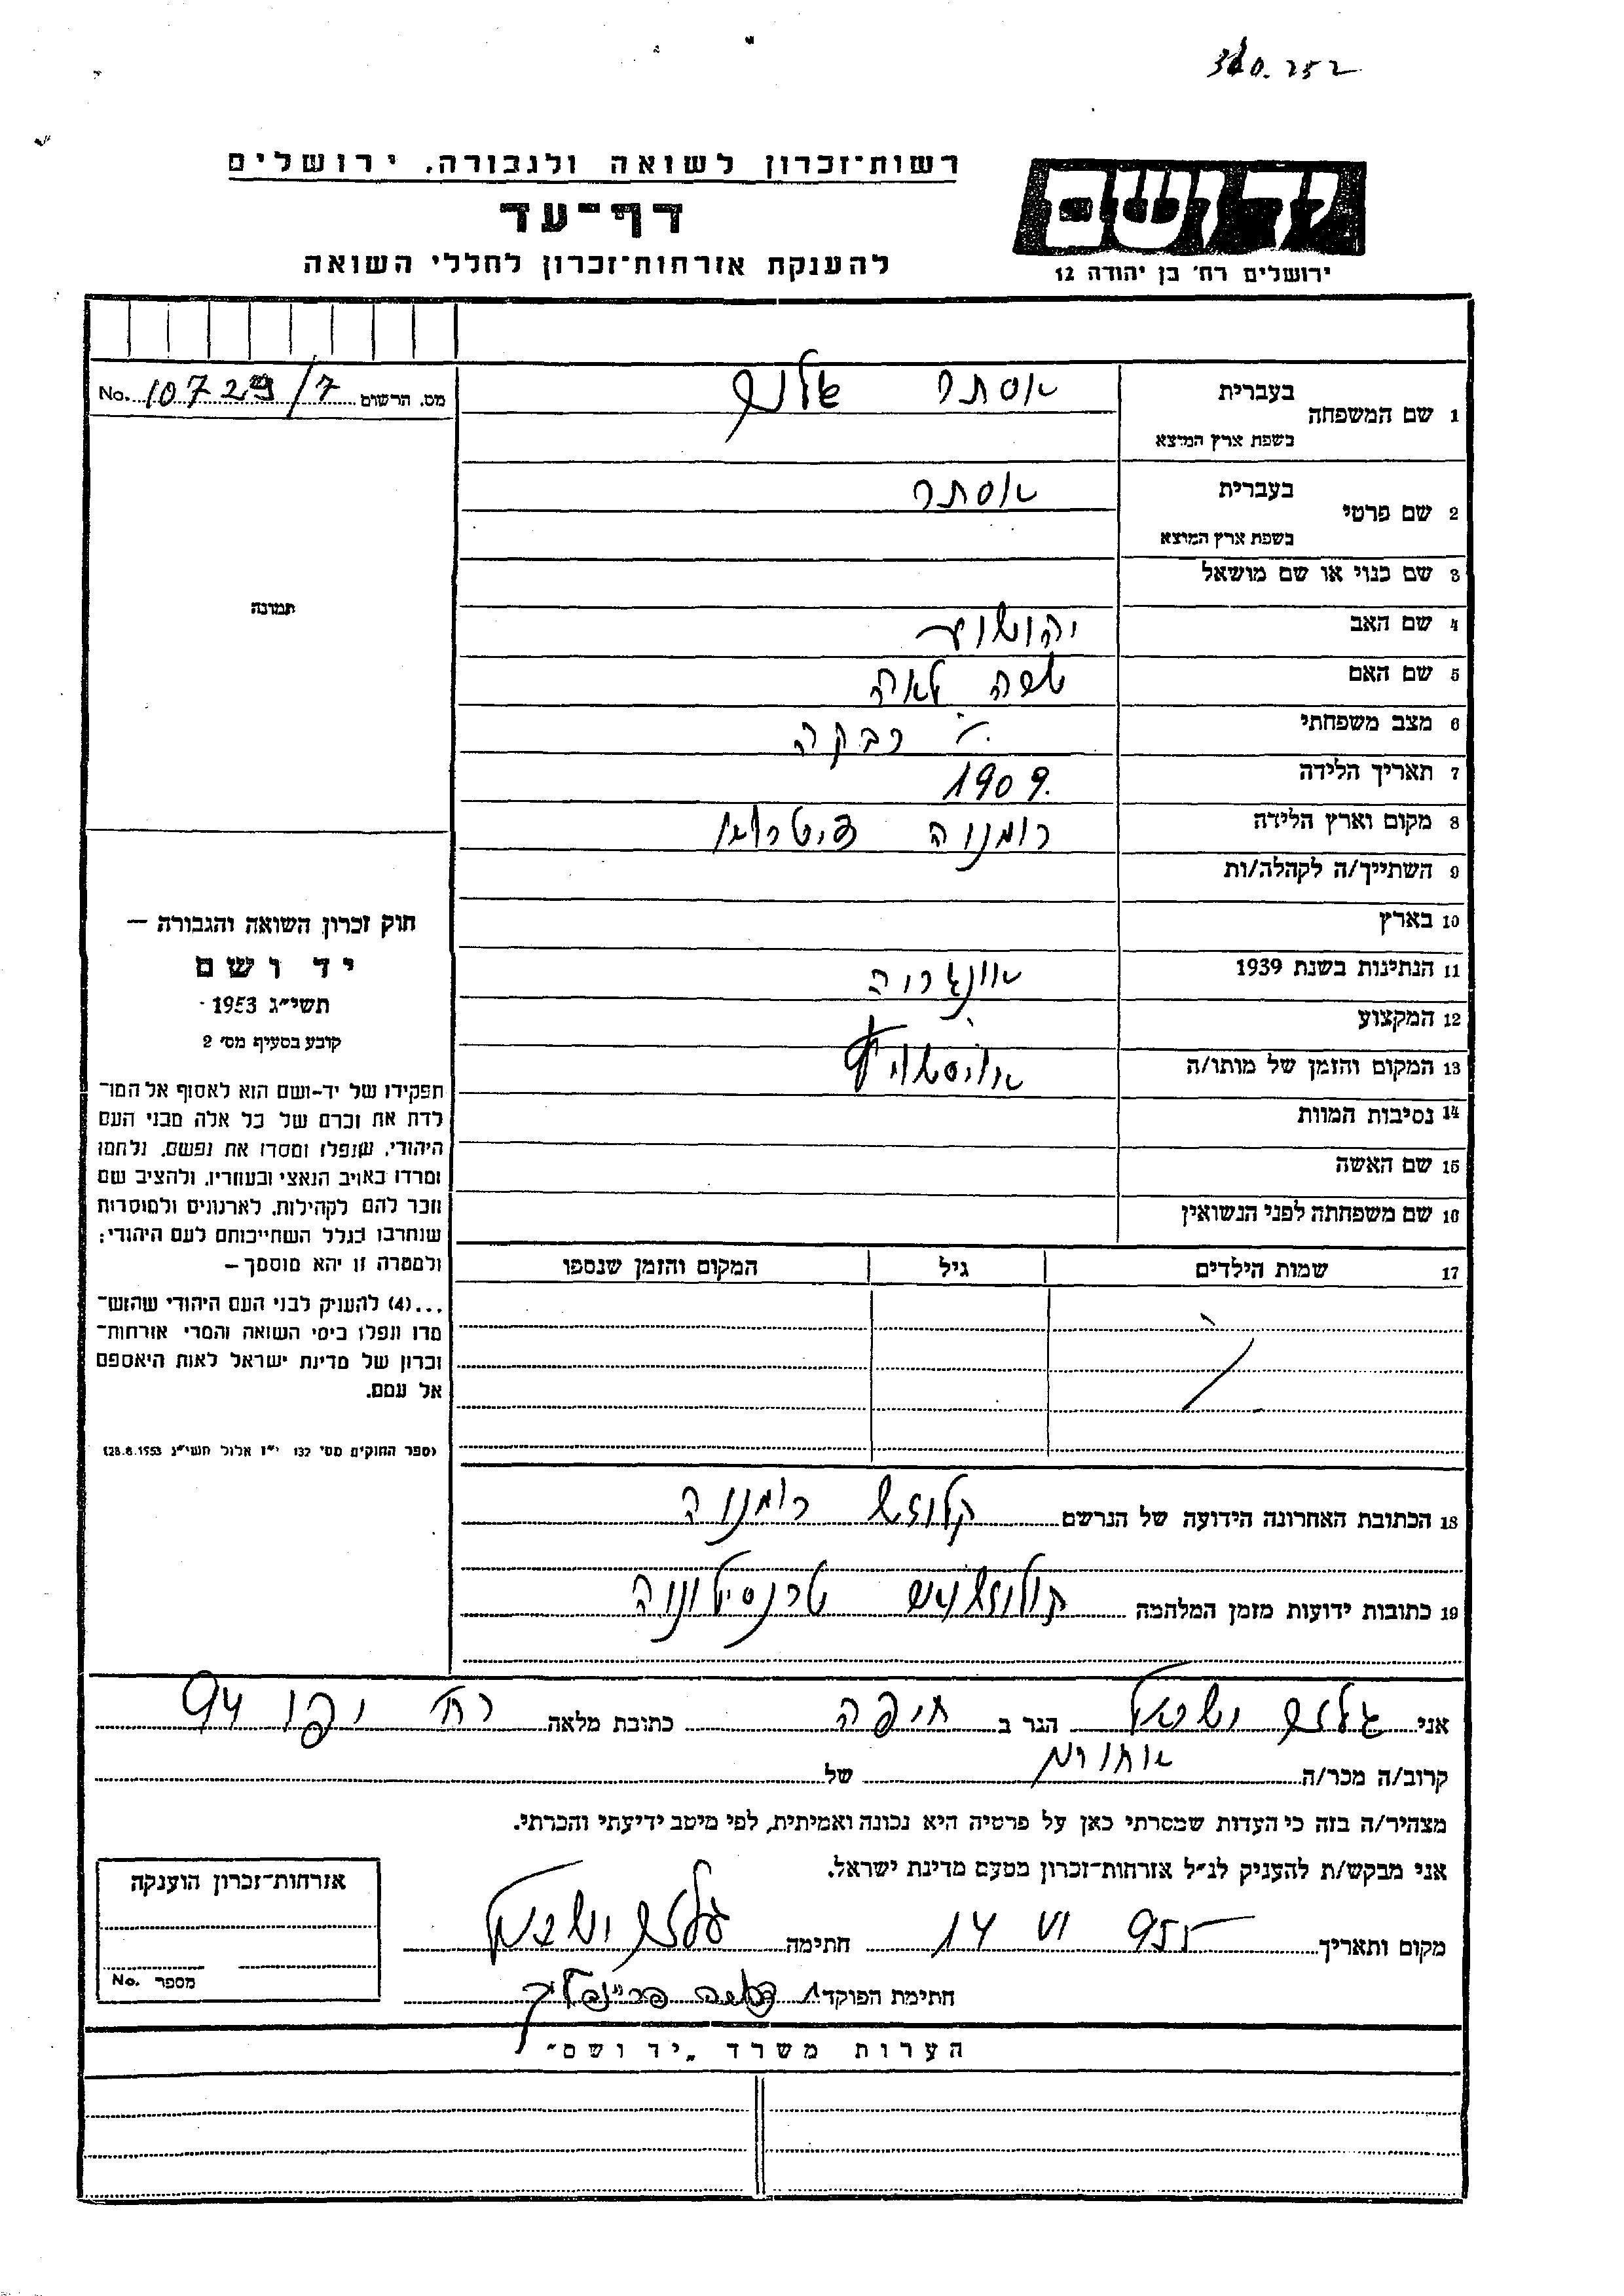 340.252
רשות־זכרון לשואה ולגבורה, ירושלים
דף־עד
להענקת אזרחות־זכרון לחללי השואה
יד ושם
ירושלים רח׳ בן יהודה 12
מס. הרשום No. 10729/7
1 שם המשפחה
בעברית אסתר
בשפת ארץ המוצא
2 שם פרטי
בעברית אסתר
בשפת ארץ המוצא
3 שם כנוי או שם מושאל
תמונה
4 שם האב יהושע
5 שם האם לאה
6 מצב משפחתי
7 תאריך הלידה 1909.
8 מקום וארץ הלידה רומניה
9 השתייך/ה לקהלה/ות
10 בארץ
11 הנתינות בשנת 1939 אונגריה
12 המקצוע
13 המקום והזמן של מותו/ה
14 נסיבות המוות
15 שם האשה
16 שם משפחתה לפני הנשואין
17 שמות הילדים גיל המקום והזמן שנספו
18 הכתובת האחרונה הידועה של הנרשם קלוזש רומניה
19 כתובות ידועות מזמן המלחמה טרנסילווניה
חוק זכרון השואה והגבורה —
יד ושם
תשי״ג 1953
קובע בסעיף מס׳ 2
תפקידו של יד-ושם הוא לאסוף אל המו־
לדת את זכרם של כל אלה מבני העם
היהודי, שנפלו ומסרו את נפשם, נלחמו
ומרדו באויב הנאצי ובעוזריו, ולהציב שם
וזכר להם לקהילות, לארגונים ולמוסדות
שנחרבו בגלל השתייכותם לעם היהודי;
ולמטרה זו יהא מוסמך —
...(4) להעניק לבני העם היהודי שהוש־
מדו ונפלו בימי השואה והמרי אזרחות־
זכרון של מדינת ישראל לאות היאספם
אל עמם.
(ספר החוקים מס׳ 132 י״ז אלול תשי״ג 28.8.1953)
אני הגר ב חיפה כתובת מלאה רח׳ יפו 94
קרוב/ה מכר/ה של
מצהיר/ה בזה כי העדות שמסרתי כאן על פרטיה היא נכונה ואמיתית, לפי מיטב ידיעתי והכרתי.
אני מבקש/ת להעניק לנ״ל אזרחות־זכרון מטעם מדינת ישראל.
מקום ותאריך 14 VI 955 חתימה
חתימת הפוקד
אזרחות־זכרון הוענקה
מספר No.
הערות משרד „יד ושם״